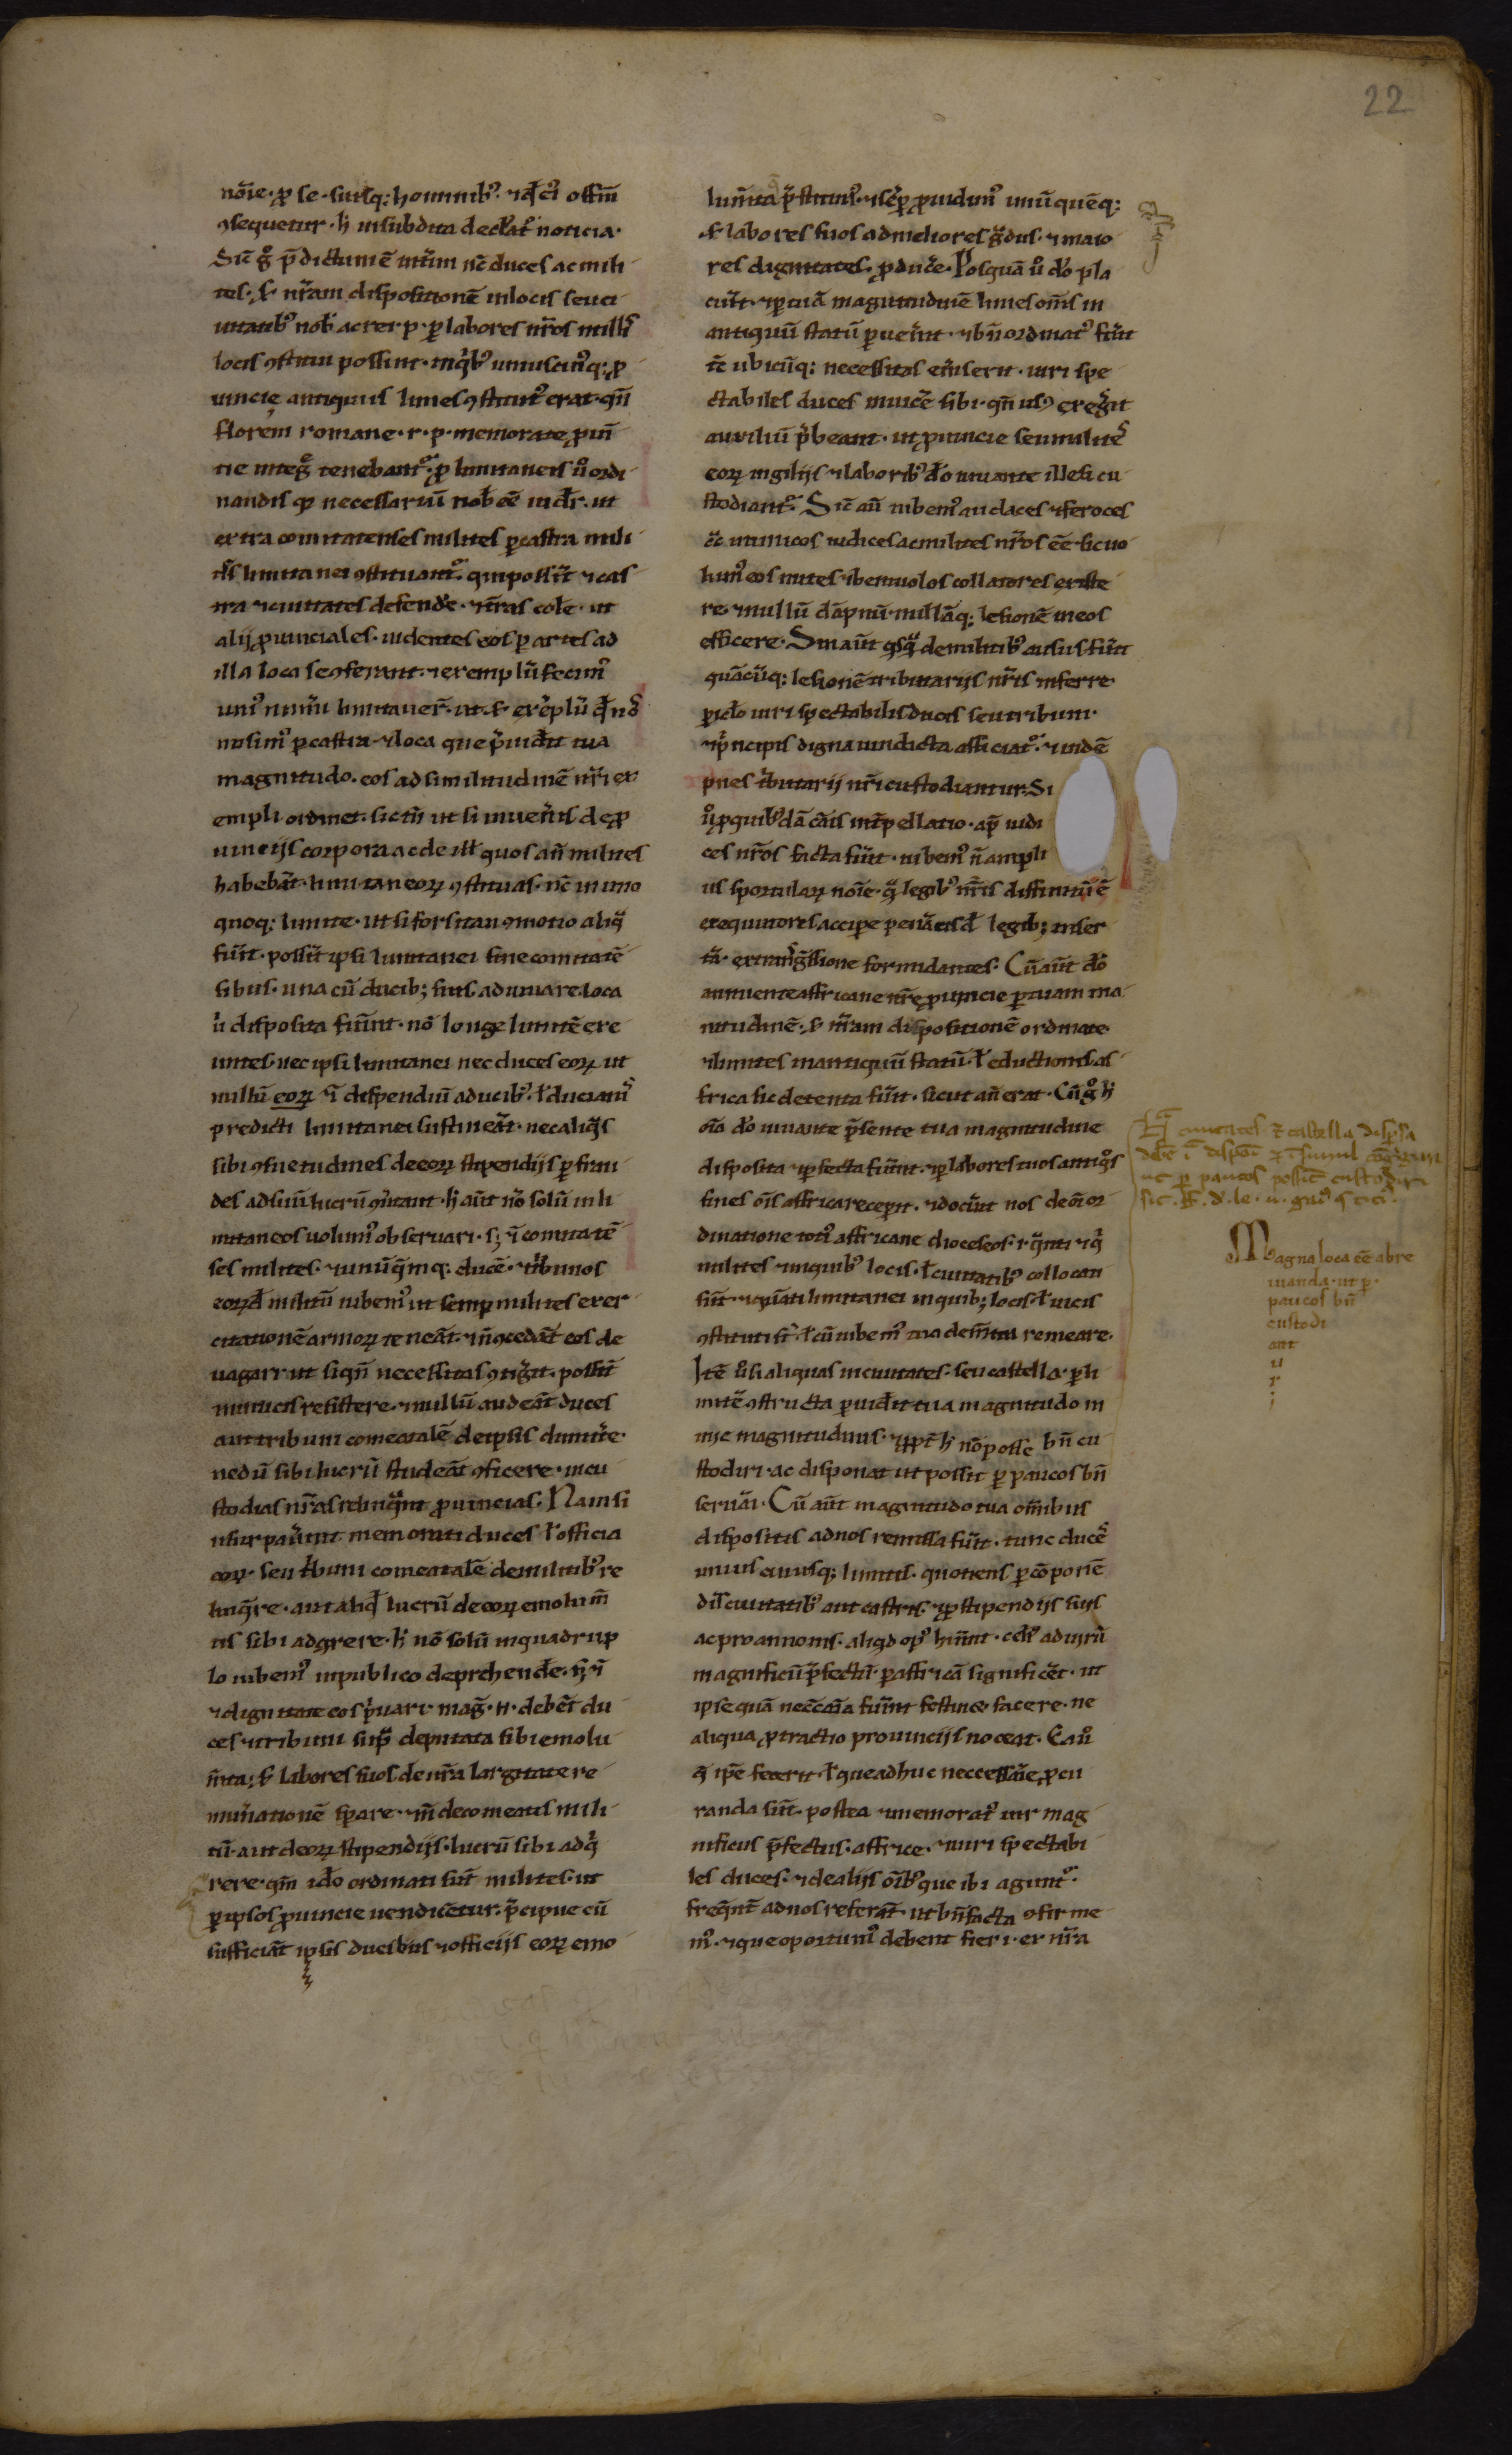 22
nōīe · ꝑ se · suisq; hominibꝰ · ⁊ qđ ciꝰ offm̄
ꝯsequetur · h̄ ut subdita declat noticia ·
Sic ḡ p̄dictum ē int̄im nc̄ duces ac mili
tes · s̄ nr̄am dispositionē in locis seu ci
uitatibꝰ nob̄ ac rei · p · ꝑ labores nr̄os milliꝰ
locis ꝯstitui possint · in q̄bꝰ uniuscuiꝰq; ꝓ
uincię antiquus limes ꝯstitutꝰ erat · qn̄
florem romane · r · p · memorate ꝓuī
tie integ̊ tenebantᷣ · ꝓ limitaneis ů ordi
nandis qꝫ necessariū nob̄ eē uidr̄ · ut
extra comitatenses milites ꝑ castra mili
tes limitanei ꝯstituantᷣ · qui possīt ⁊ cas
tra ⁊ ciuitates defende · ⁊ tr̄as cole · ut
alij ꝓuinciales · uidentes eos ꝑ artes ad
illa loca se ꝯferant · ⁊ exemplū fecimꝰ
uniꝰ num̄i limitaneꝝ · ut · s̄ exēplū qđ nos
misimꝰ ꝑ castra · ⁊ loca que p̄uidit tua
magnitudo · eos ad similitudinē nr̄i ex
empli ordinet · sic tn̄ ut si inuen̄is de ꝓ
uincijs corpora ac de ill̄ quos an̄ milites
habebāt · limitaneoꝝ ꝯstituas · nc̄ in uno
quoq; limite · ut si forsitan ꝯmotio aliq̄
fūit · possīt ipsi limitanei sine comitatē
sibus · una cū ducib; suis adiuuare · loca
ů disposita fiūnt · nō longe limitē exe
untes · nec ipsi limitanei nec duces eoꝝ ut
nullū eoꝝ ⁊ī dispendiū a ducibꝰ · ł duciaīs
predicti limitanei sustineāt · nec aliq̄s
sibi ꝯsuetudines de eoꝝ stipendijs ꝑ frau
des ad suū lucrū ꝯuertant · h̄ aūt nō solū in li
mitaneos uolumꝰ obseruari · s; ⁊ī comitatē
ses milites · ⁊ unūq̄mq; ducē · ⁊ tribunos
eoꝝđ militū iubemꝰ ut semꝑ milites exer
citationē armoꝝ teneāt · ⁊ n̄ ꝯcedāt eos de
uagari ut si qn̄ necessitas ꝯtig̊it · possīt
inimicis resistere · ⁊ nullū audeāt duces
aut tribuni comeatalē de ipsis dimitte ·
ne dū sibi lucrū studeāt ꝯficere · incu
stodias nr̄as relinq̄nt ꝓuincias · Nam si
usurpau̅int memorati duces ł officia
eoꝝ · seu tribuni comeatalē de militibꝰ re
linq̄re · aut aliqđ lucrū de eoꝝ emolum̄
tis sibi adgrere · h̄ nō solū in quadrup
lo iubemꝰ in publico deprehende · s; ⁊ī
⁊ dignitate eos p̄uari · mag̊ · n · debēt du
ces · ⁊ tribuni sup̄ deputata sibi emolu
m̄ta; s̄ labores suos de nr̄a largitate re
mun̄ationē sꝑare · ⁊ n̄ de comeatis mili
tū · aut de eoꝝ stipendijs · lucrū sibi adq̄
rere · qm̄ ido ordinati sūt milites · ut
ꝑ ipsos ꝓuincie uendicētur · p̄cipue cū
sufficiāt ipsis ducibus ⁊ officijs eoꝝ emo
lum̄ta p̄stitimꝰ · ⁊ seꝑ ꝓuidimꝰ unūquēq;
s̄ labores suos ad meliores g̊dus · ⁊ maio
res dignitates · ꝓduce · Posquā ů do pla
cūit · ⁊ ꝑ tuā magnitudinē limes om̄s in
antiquū statū ꝑuen̄int · ⁊ bn̄ ordinatꝰ fūit
tc̄ ubicūq; necessitas em̄serit · uiri spe
ctabiles duces inuicē sibi · qn̄ usꝰ exeg̊it
auxiliū p̄beant · ut ꝓuincie seu milites
eoꝝ uigilijs ⁊ laboribꝰ do iuuante illesi cu
stodiantᷣ · Sic aū iubemꝰ audaces ⁊ feroces
cͣ inimicos iudices ac milites nr̄os eē · sic uo
lumꝰ eos mites ⁊ beniuolos collatores existe
re · ⁊ nullū dāpnū · nullāq; lesionē in eos
efficere · Sin aūt qsq̄ de militibꝰ ausus fūit
quācūq; lesionē tributarijs nr̄is inferre ·
ꝑiclo uiri spectabilis ducis seu tribuni ·
⁊ p̄ncipis digna uindicta afficiatᷣ · ⁊ indē
pnes tributarij nr̄i custodiantur · Si
ů ꝓ quibꝰdā cāis int̄pellatio · ap̄ iudi
ces nr̄os facta fūit · iubemꝰ n̄ ampli
us sportulaꝝ nōīe · q̄ legibꝰ nr̄is diffinitū ē
exequutores accipe · penā eisđ legib; inser
tā · ex trāsg̊ssione formidantes · Cū aūt do
annuente affricane nr̄ę ꝓuincie ꝑ tuam ma
nitudinē · s̄ nr̄am dispositionē ordinate ·
⁊ limites in antiquū statū · ł eductionis af
frica sic detenta fūit · sicut an̄ erat · Cū g̊ h̄
oīa do iuuante p̄sente tua magnitudine
disposita ⁊ ꝑfecta fūint · ⁊ ꝑ labores tuos antiq̊s
fines oīs affrica receꝑit · ⁊ docūit nos de oī or
dinatione totiꝰ affricane dioceseos · i q̄nti ⁊ q̄
milites ⁊ in quibꝰ locis · ł ciuitatibꝰ collocati
sūt · ⁊ q̄nti limitanei in quib; locis ł uicis
ꝯstituti st̄ · ł cū iubemꝰ tua clem̄tia remeare ·
Itē ů si aliquas in ciuitates · seu castella · ꝑ li
mitē ꝯstructa ꝑuidit tua magnitudo in
mie magnitudinis · ⁊ ꝓpt̄ h̄ nō posse bn̄ cu
stodiri · ac disponat ut possit ꝑ paucos bn̄
seruāi · Cū aūt magnitudo tua om̄ibus
dispositis ad nos remissa fūit · tunc ducē
unius cuiusq; limitis · quotiens ꝑ cōponē
dis ciuitatibꝰ aut castris · ⁊ ꝓ stipendijs suis
ac pro annonis · aliqd opꝰ hūint · celiꝰ ad uirū
magnificū p̄fectū · ꝑ affricā significēt · ut
ipse quā neccāia fūint festine facere · ne
aliqua ꝓtractio prouincijs noceat · Ea ů
q̄ ipē fecerit · ł que adhuc neccessāie ꝓcu
randa sūt · postea ⁊ memoratꝰ uir mag
nificus p̄fectus · affrice · ⁊ uiri spectabi
les duces · ⁊ de alijs oībꝰ que ibi aguntᷣ ·
freq̄nt̄ ad nos referāt · ut bn̄ facta ꝯfirme
mꝰ · ⁊ que oportunꝰ debent fieri · ex nr̄a
ciuitates ⁊ castella disꝑsa
ut ꝑ paucos possīt custodiri
Magna loca eē abre
uianda · ut ꝑ ·
paucos bn̄
custodi
ant
u
r
i